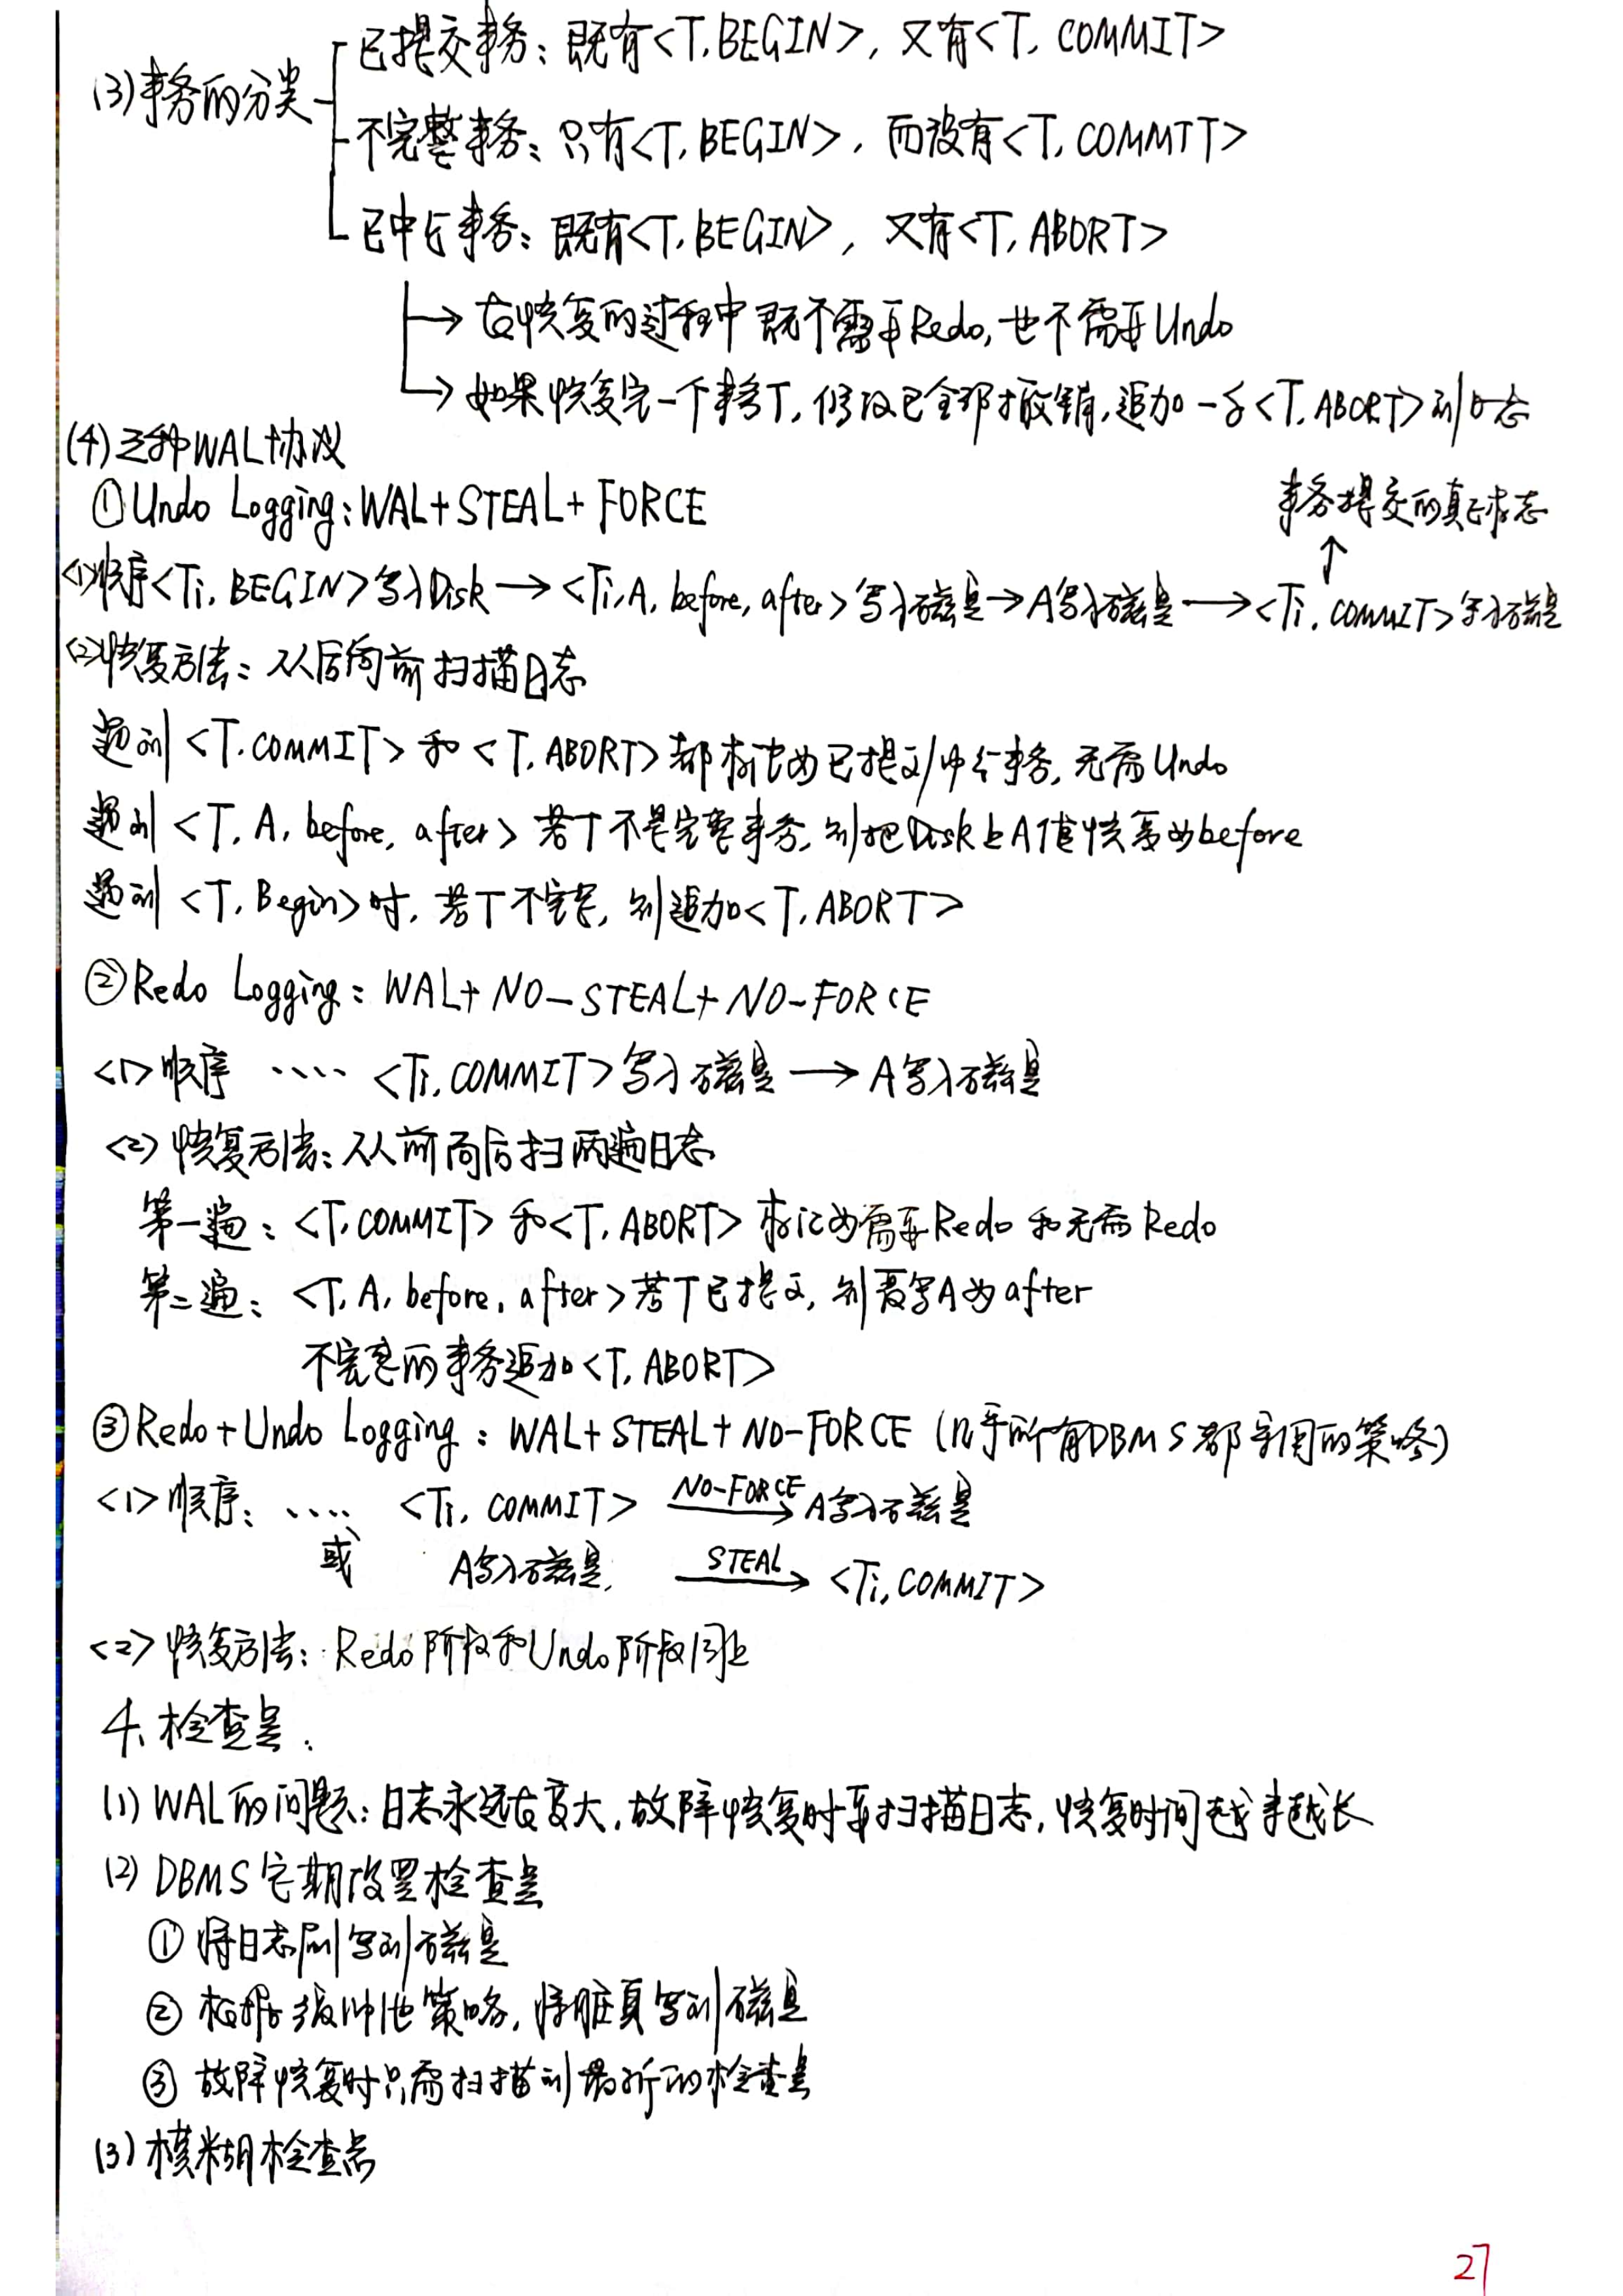 (3)事务的分类
已提交事务：既有<T,BEGIN>，又有<T, COMMIT>
不完整事务：只有<T, BEGIN>，而没有<T, COMMIT>
已中止事务：既有<T, BEGIN>，又有<T, ABORT>
→ 在恢复的过程中既不需要Redo，也不需要Undo
→ 如果恢复完一个事务T，修改已全部撤销，追加一条<T, ABORT>到日志
(4)三种WAL协议
①Undo Logging：WAL+STEAL+FORCE
事务提交的真正标志
↑
<1>顺序<Ti, BEGIN>写入Disk→<Ti,A, before, after>写入磁盘→A写入磁盘→<Ti, COMMIT>写入磁盘
<2>恢复方法：从后向前扫描日志
遇到<T.COMMIT>和<T, ABORT>都标记为已提交/中止事务，无需Undo
遇到<T, A, before, after>若T不是完整事务，则把Disk上A值恢复为before
遇到<T, Begin>时，若T不完整，则追加<T, ABORT>
②Redo Logging：WAL+NO-STEAL+NO-FORCE
<1>顺序 ···· <Ti, COMMIT>写入磁盘→A写入磁盘
<2>恢复方法：从前向后扫两遍日志
第一遍：<T, COMMIT>和<T, ABORT>标记为需要Redo和无需Redo
第二遍：<T, A, before, after>若T已提交，则覆写A为after
不完整的事务追加<T, ABORT>
③Redo+Undo Logging：WAL+STEAL+NO-FORCE (几乎所有DBMS都采用的策略)
<1>顺序：···· <Ti, COMMIT> NO-FORCE→ A写入磁盘
或 A写入磁盘 STEAL→ <Ti, COMMIT>
<2>恢复方法：Redo阶段和Undo阶段同上
4、检查点
(1) WAL的问题：日志永远在变大，故障恢复时要扫描日志，恢复时间越来越长
(2) DBMS定期设置检查点
① 将日志刷写到磁盘
② 根据缓冲池策略，将脏页写到磁盘
③ 故障恢复时只需扫描到最新的检查点
(3)模糊检查点
27